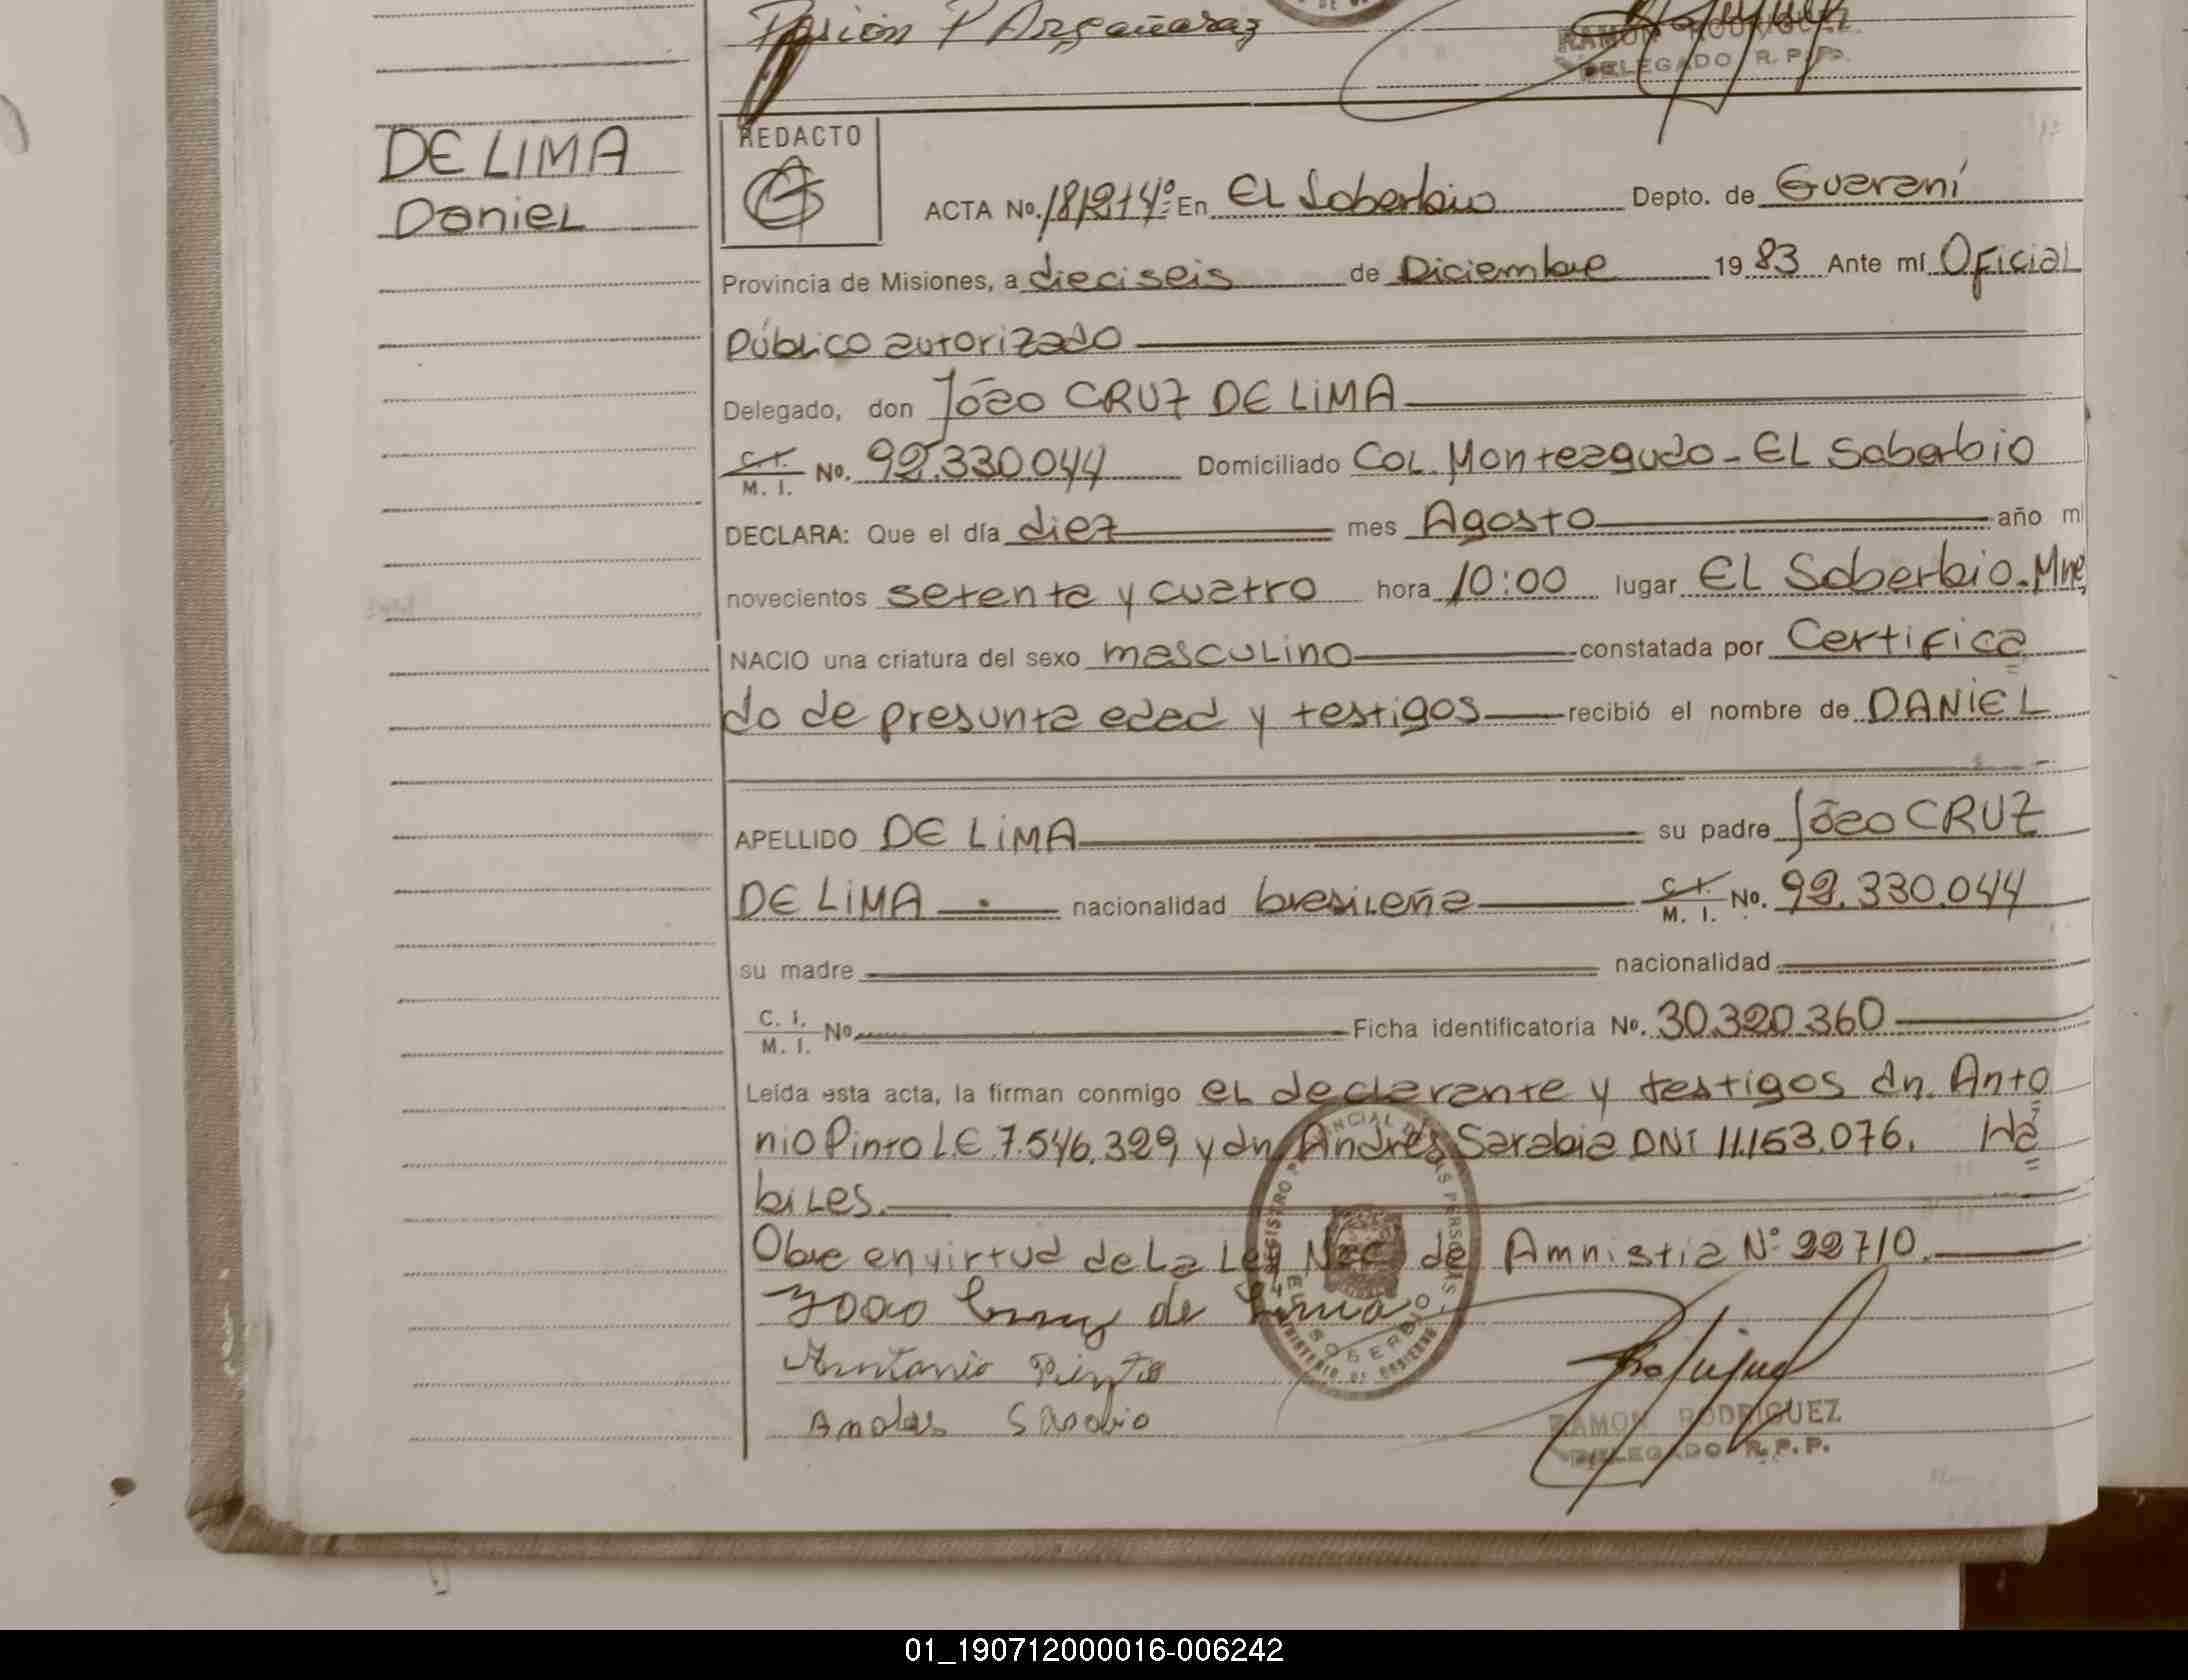 Pasión P Argañaraz
RAMON RODRIGUEZ
DELEGADO R. P. P.
DE LIMA
Daniel
REDACTO
ACTA No. En El Soberbio Depto. de Guaraní
Provincia de Misiones, a dieciseis de Diciembre 1983 Ante mí Oficial
Público autorizado
Delegado, don Jõao CRUZ DE LiMA
C. I. M. I. No. 92.330.044 Domiciliado Col. Monteagudo - El Soberbio
DECLARA: Que el día diez mes Agosto año m
novecientos setenta y cuatro hora 10:00 lugar El Soberbio. Mnes
NACIO una criatura del sexo masculino constatada por Certifica
do de presunta edad y testigos recibió el nombre de DANiEL
APELLIDO DE LiMA su padre Jõao CRUZ
DE LiMA nacionalidad brasileña C. I. M. I. No. 92.330.044
su madre nacionalidad
C. I. M. I. No Ficha identificatoria No. 30.320.360
Leída esta acta, la firman conmigo el declarante y testigos dn. Anto
nio Pinto L.E 7.546.329 y dn Andrés Sarabia DNI 11.153.076. Há
biles.
Obre en virtud de la Ley Nac de Amnistia N° 22710.
Joao Cruz de Lima
Antonio Pinto
Andres Sarabio
EL SOBERBIO
MINISTERIO DE GOBIERNO
RAMON RODRIGUEZ
DELEGADO R. P. P.
01_190712000016-006242